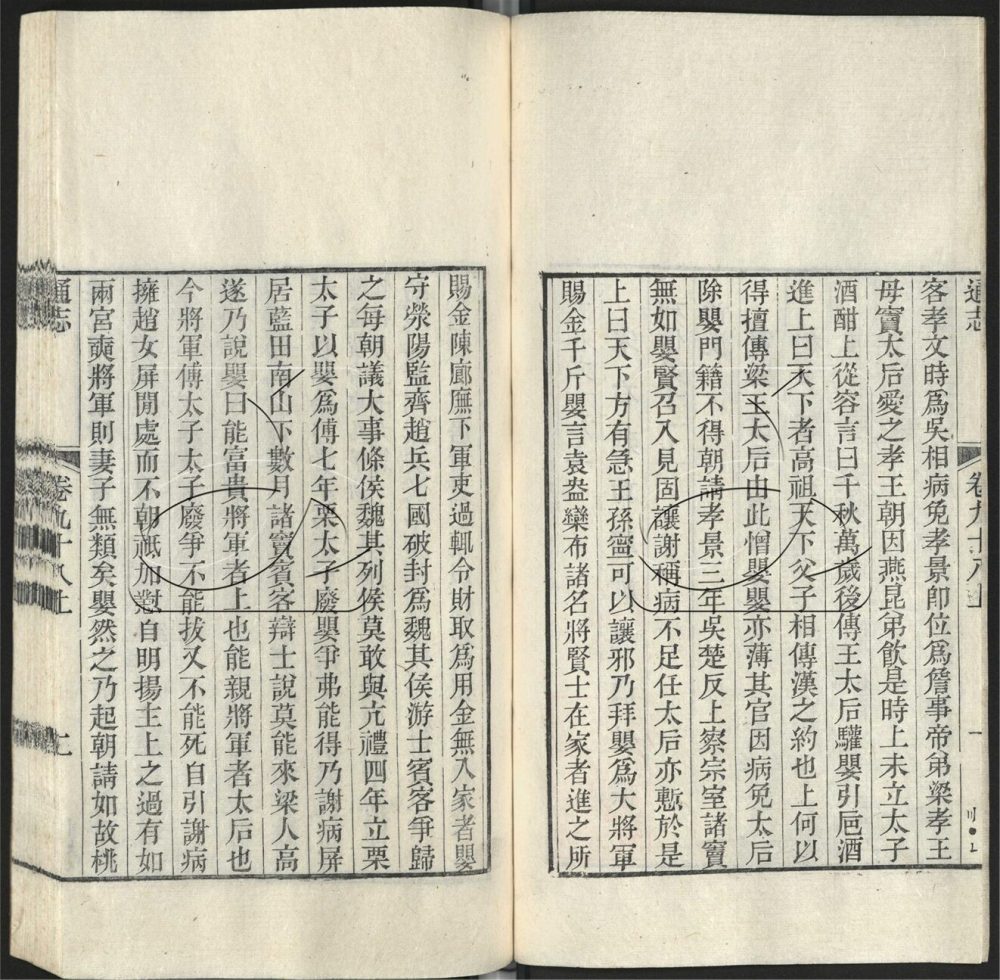 通志
卷九十八上
一
客孝文時爲吳相病免孝景卽位爲詹事帝弟梁孝王
母竇太后愛之孝王朝因燕昆弟飲是時上未立太子
酒酣上從容言曰千秋萬歲後傳王太后驩嬰引卮酒
進上曰天下者高祖天下父子相傳漢之約也上何以
得擅傳梁王太后由此憎嬰嬰亦薄其官因病免太后
除嬰門籍不得朝請孝景三年吳楚反上察宗室諸竇
無如嬰賢召入見固讓謝稱病不足任太后亦慙於是
上曰天下方有急王孫寧可以讓邪乃拜嬰爲大將軍
賜金千斤嬰言袁盎欒布諸名將賢士在家者進之所
賜金陳廊廡下軍吏過輒令財取爲用金無入家者嬰
守滎陽監齊趙兵七國破封爲魏其侯游士賓客爭歸
之每朝議大事條侯魏其列侯莫敢與亢禮四年立栗
太子以嬰爲傅七年栗太子廢嬰爭弗能得乃謝病屏
居藍田南山下數月諸竇賓客辯士說莫能來梁人高
遂乃說嬰曰能富貴將軍者上也能親將軍者太后也
今將軍傅太子太子廢爭不能拔又不能死自引謝病
擁趙女屏閒處而不朝祇加懟自明揚主上之過有如
兩宮奭將軍則妻子無類矣嬰然之乃起朝請如故桃
通志
卷九十八上
二